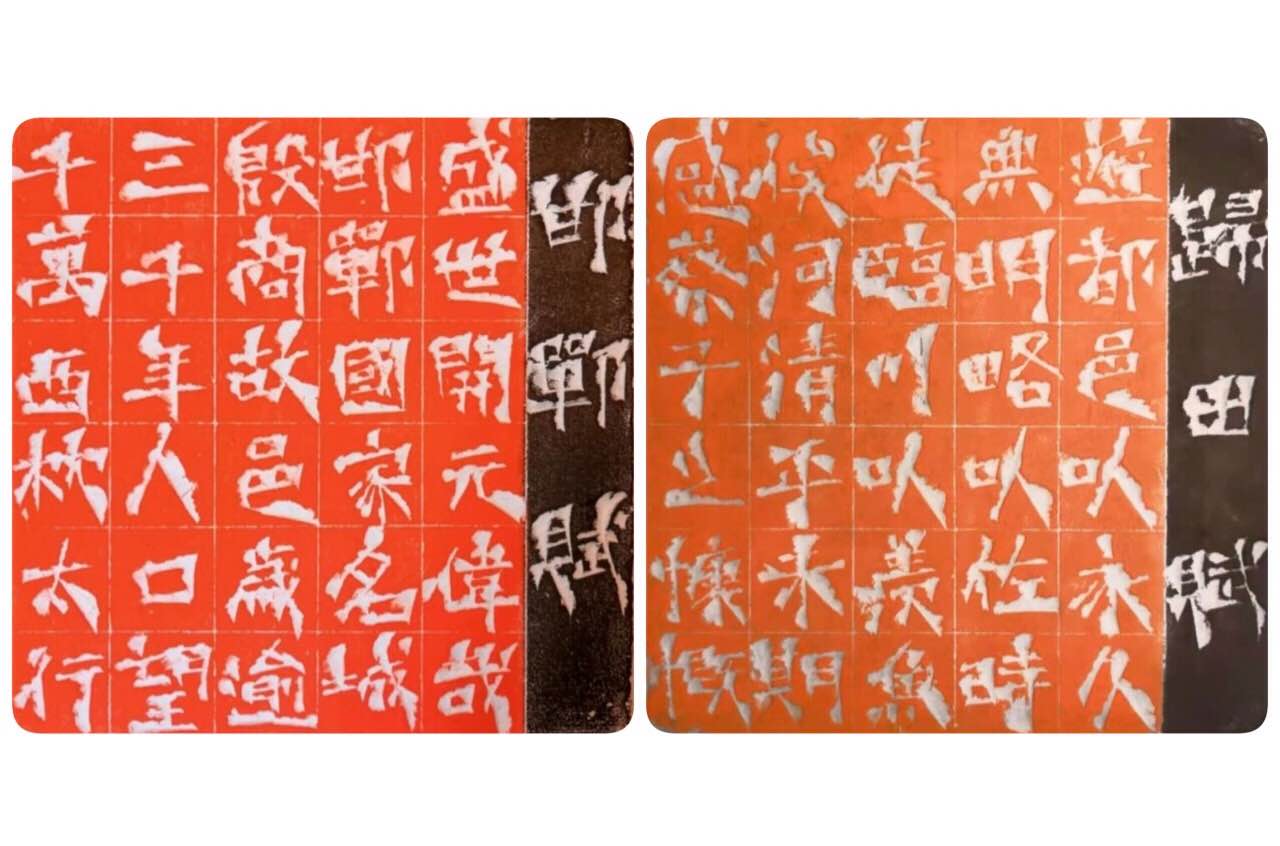 邯鄲賦
盛世開元偉哉
邯鄲國家名城
殷商故邑歲逾
三千年人口望
千萬西枕太行
歸田賦
遊都邑以永久
無明略以佐時
徒臨川以羨魚
俟河清乎未期
感蔡子之慷慨